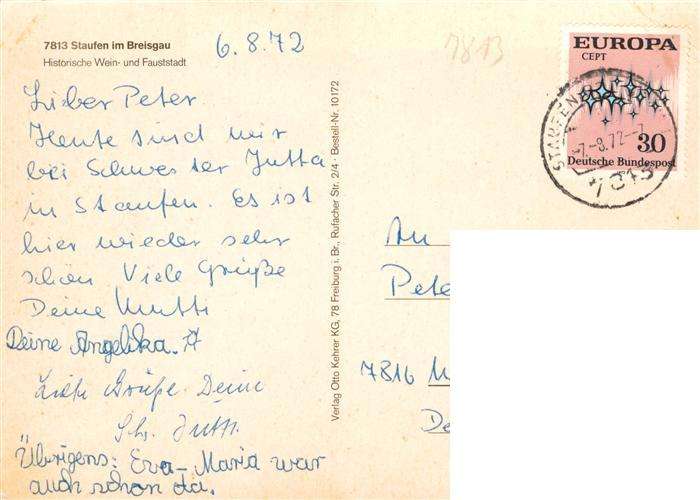 7813 Staufen im Breisgau
Historische Wein- und Fauststadt
6.8.72
7813
Lieber Peter
Heute sind wir
bei Schwester Jutta
in Staufen. Es ist
hier wieder sehr
schön Viele Grüße
Deine Mutti
Deine Angelika.
Liebe Grüße Deine
Schw. Jutta
Übrigens: Eva-Maria war
auch schon da.
Verlag Otto Kehrer KG, 78 Freiburg i. Br., Rufacher Str. 2/4 · Bestell-Nr. 10172
EUROPA
CEPT
30
Deutsche Bundespost
STAUFEN
-7.-8.72-7
7813
An
Pete
7816